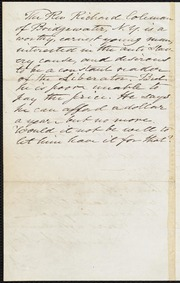 The Rev Richard Coleman
of Bridgewater, N.Y. is a
worthy, earnest young man,
interested in the anti-Slavery
cause, and desirous
to be a constant reader
of the Liberator. But
he is poor & unable to
pay the price. He says
he can afford a dollar
a year - but no more.
Would it not be well to
let him have it for that?